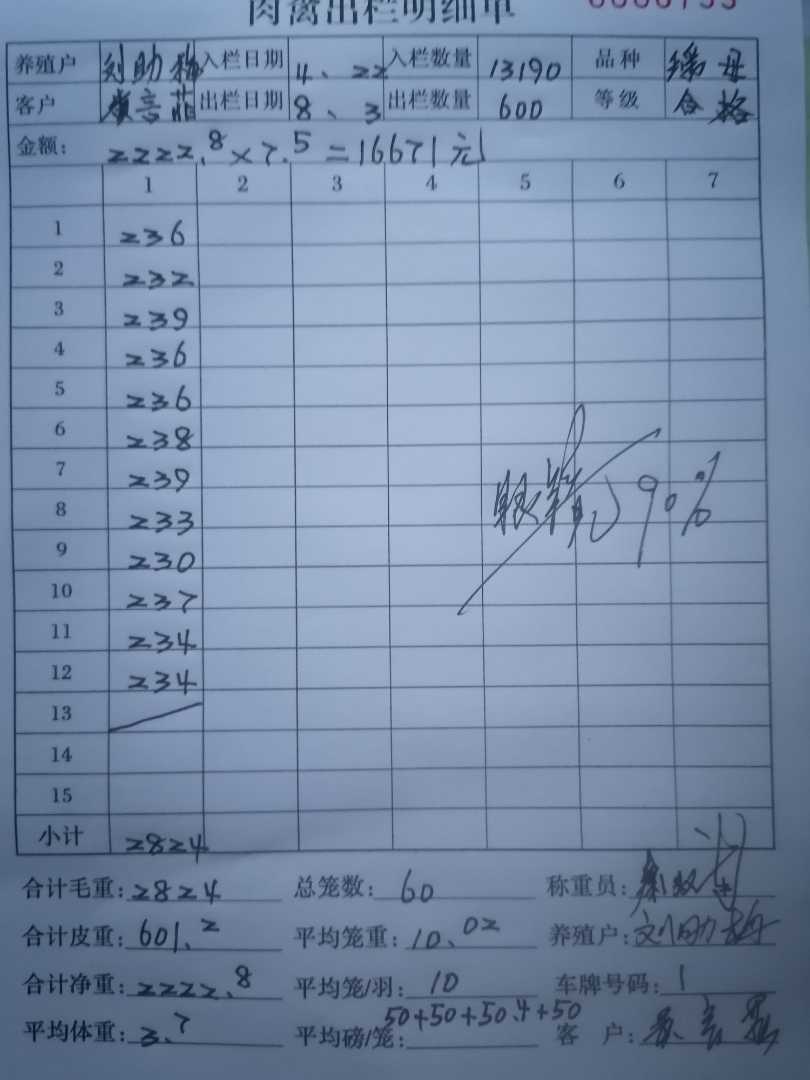 肉禽出栏明细单
养殖户 刘助梅 入栏日期 4、22 入栏数量 13190 品种 瑶母
客户 出栏日期 8、3 出栏数量 600 等级 合格
金额: 2222.8×7.5=16671元
1 2 3 4 5 6 7
1 236
2 232
3 239
4 236
5 236
6 238
7 239
8 233
9 230
10 237
11 234
12 234
13
14
15
90%
小计 2824
合计毛重: 2824 总笼数: 60 称重员:
合计皮重: 601.2 平均笼重: 10.02 养殖户: 刘助梅
合计净重: 2222.8 平均笼/羽: 10 车牌号码: 1
平均体重: 3.7 平均磅/笼: 50+50+50.4+50 客户: